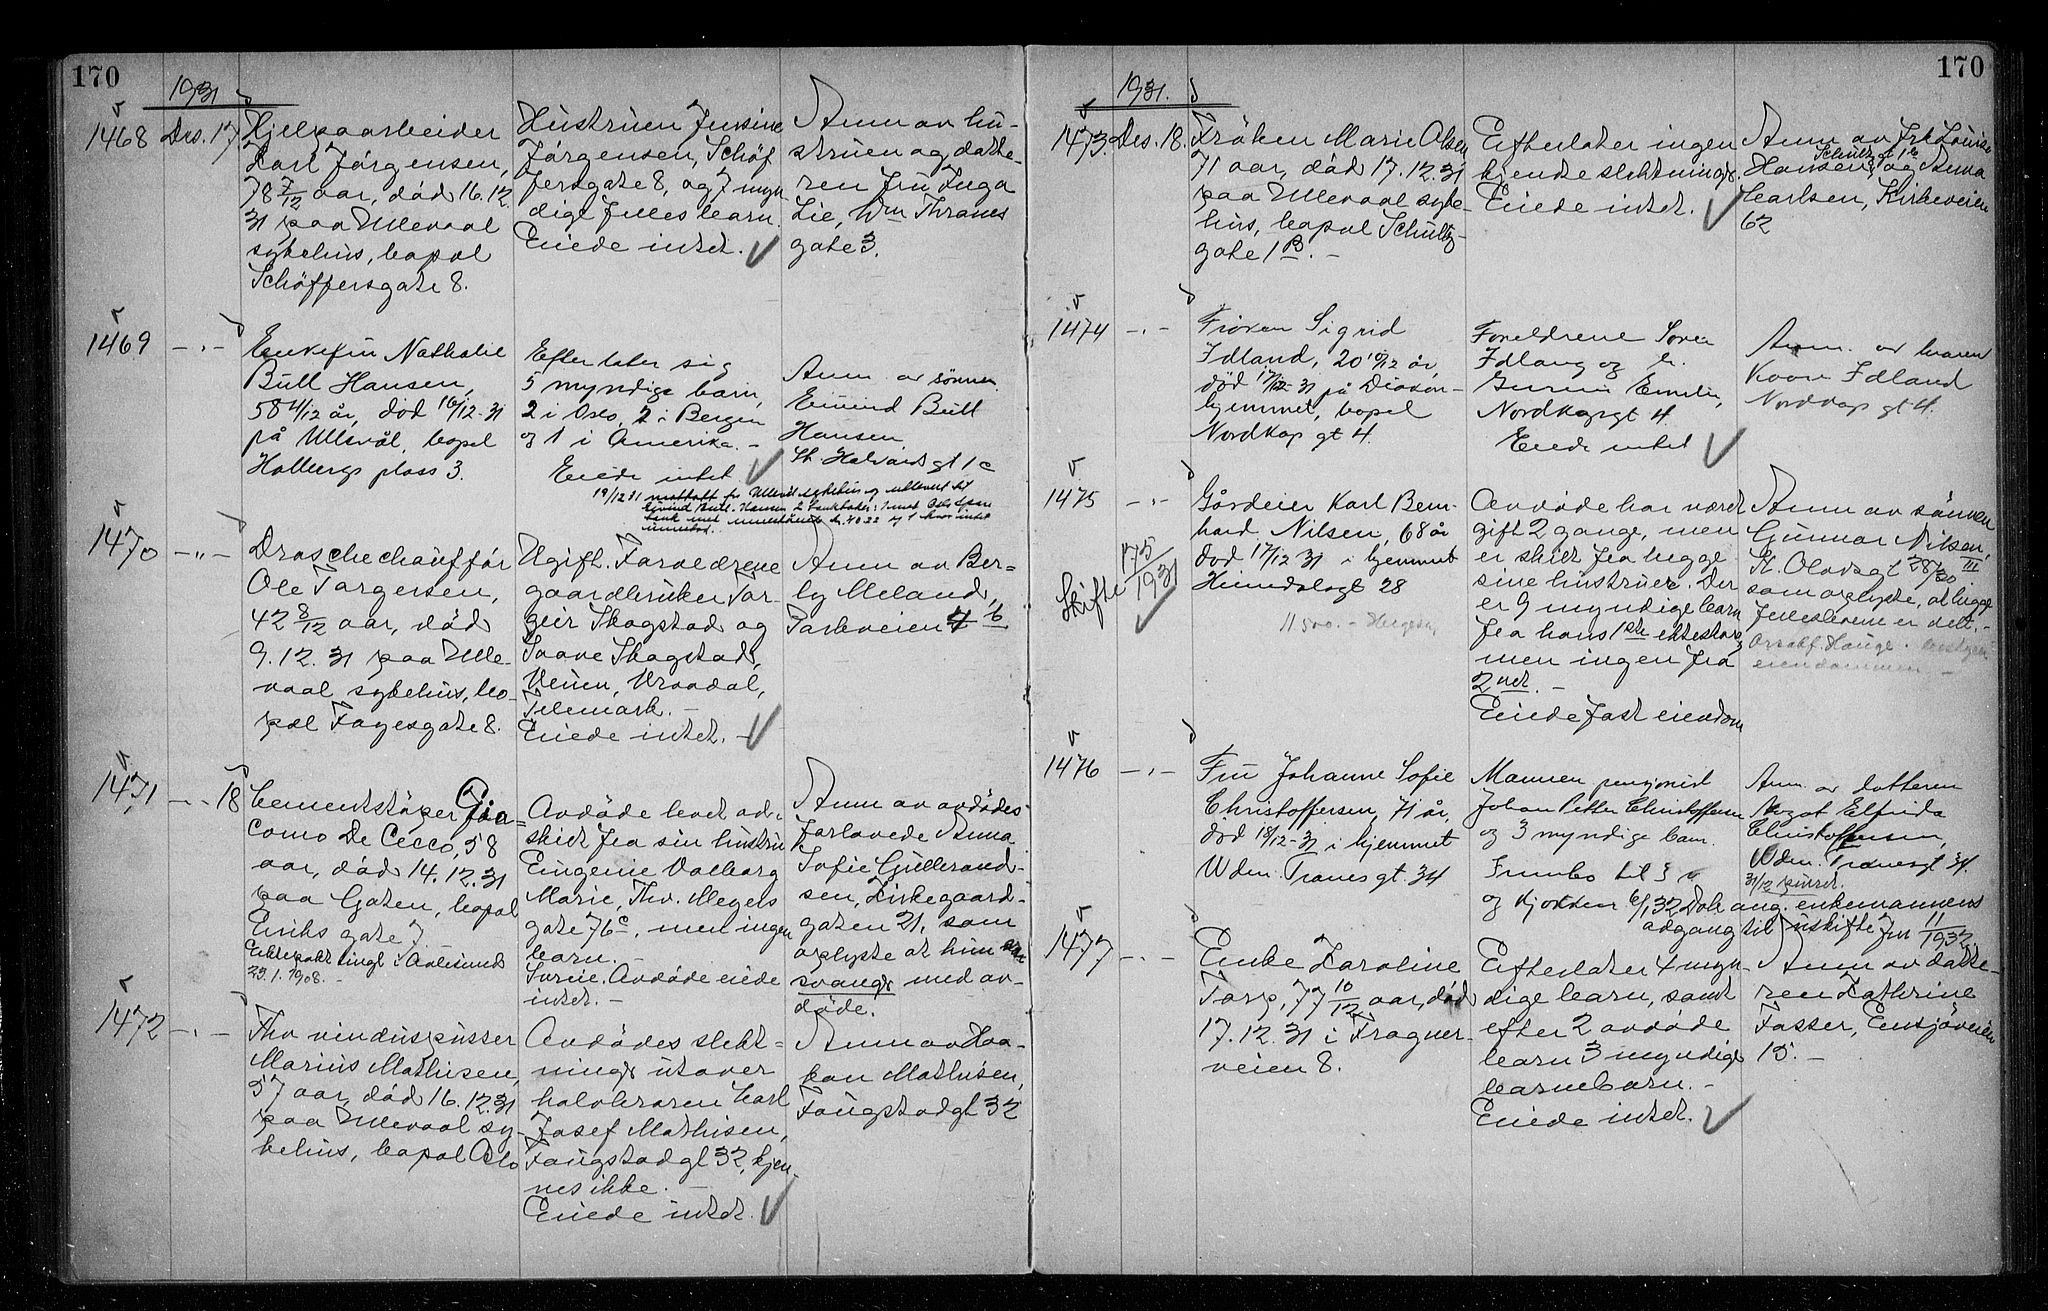 170
1931
1468 Des. 17 Hjelpearbeider
Karl Jörgensen,
78 7/12 aar, död 16.12.
31 paa Ullevaal
sykehus, bopæl
Schöffersgate 8.
Hustruen Jensine
Jörgensen, Schöf
fersgate 8, og 7 myn
dige fellesbarn.
Eiede intet.
Anm av hu-
struen og datte-
ren fru Inga
Lie, Wm Thranes
gate 3.
1469 -"- Enkefru Nathalie
Bull Hansen,
58 4/12 år, död 16/12-31
på Ullevål, bopel
Holbergs plass 3.
Efterlater sig
5 myndige barn,
2 i Oslo, 2 i Bergen
og 1 i Amerika.-
Eiede intet
19/12 31 mottatt fr Ullevål sykehus og utlevert til
Eivind Bull-Hansen 2 bankbøker: 1 med Oslo Spare
bank med innestående kr. 40.22 og 1 hvor intet
innestod.
Anm. av sönnen
Eivind Bull
Hansen
St. Halvards gt 1c
1470 -"- Droschechaufför
Ole Torgersen,
42 8/12 aar, död
9.12.31 paa Ulle-
vaal sykehus, bo-
pæl Fayesgate 8.
Ugift. Foreldrene
gaardbruker Tor-
geir Skogstad og
Saave Skogstad,
Veum, Vraadal,
Telemark.-
Eiede intet.-
Anm av Ber-
ly Meland,
Parkveien 4 b
1471 -"- 18 Cementstöper Gia-
como De Cecco, 58
aar, död 14.12.31
paa Gaten, bopæl
Eiriks gate 7.
Ektepakt tingl i Aalesund
23.1.1908.-
Avdöde levet ad-
skilt fra sin hustru
Eugenie Valborg
Marie, Thv. Meyers
gate 76c, men ingen
barn.-
Avdöde eiede
intet.-
Anm av avdödes
forlovede Anna
Sofie Gulbrand-
sen, Kirkegaard-
gaten 21, som
oplyste at hun er
svanger med av-
döde.
1472 -"- Fhv vinduspusser
Marius Mathisen,
57 aar, död 16.12.31
paa Ullevaal sy-
kehus, bopæl Oslo
Avdödes slekt-
ninger utover
halvbroren Carl
Josef Mathisen,
Faugstadgt 32, kjen-
nes ikke.-
Eiede intet.
Anm av Haa-
kon Mathisen,
Faugstadgt 32
170
1931.
1473. Des. 18. Fröken Marie Olsen
71 aar, död 17.12.31
paa Ullevaal syke-
hus, bopæl Schultz-
gate 1B.-
Efterlater ingen
kjente slektninger.
Eiede intet.
Anm av frk Lovise
Schultzgt 1B
Hansen, og Anna
Carlsen, Kirkeveien
62
1474 -"- Fröken Sigrid
Idland, 20 10/12 år,
död 17/12-31 på Diakon-
hjemmet, bopel
Nordkap gt 4.
Foreldrene Soren
Idland og h.
Gurine Emilie,
Nordkapgt 4.
Eiede intet
Anm. av broren
Kaare Idland
Nordkap gt 4.
1475 -"- Gårdeier Karl Bern-
hard Nilsen, 68 år
död 17/12 31 i hjemmet
Heimdalsgt 28
Skifte 175/1931
11500.-
Avdöde har været
gift 2 gange, men
er skilt fra begge
sine hustruer. Der
er 9 myndige barn
fra hans 1ste ekteskap,
men ingen fra
2net.-
Eiede fast eiendom
Anm av sönnen
Gunnar Nilsen,
St. Olavsgt 28/30 III
som oplyste, at begge
fellesboene er delt.-
eiendommen -
1476 -"- Fru Johanne Sofie
Christoffersen, 71 år,
död 18/12-31 i hjemmet
Wilm. Tranes gt. 34
Mannen pensjonist
Johan Petter Christoffersen
og 3 myndige barn.
Innbo til
og kjokken 6/1 32 Dok ang. enkemannens
adgang til uskifte jnr 11/1932
Anm. av datteren
Margot Elfrida
Christoffersen,
Wilm. Tranesgt 34.
31/12 purret.
1477 -"- Enke Karoline
Torp, 77 10/12 aar, död
17.12.31 i Frogner-
veien 8.
Efterlater 4 myn-
dige barn, samt
efter 2 avdöde
barn 3 myndige
barnebarn.-
Eiede intet.
Anm av datte-
ren Kathrine
Fosser, Ensjöveien
15.-